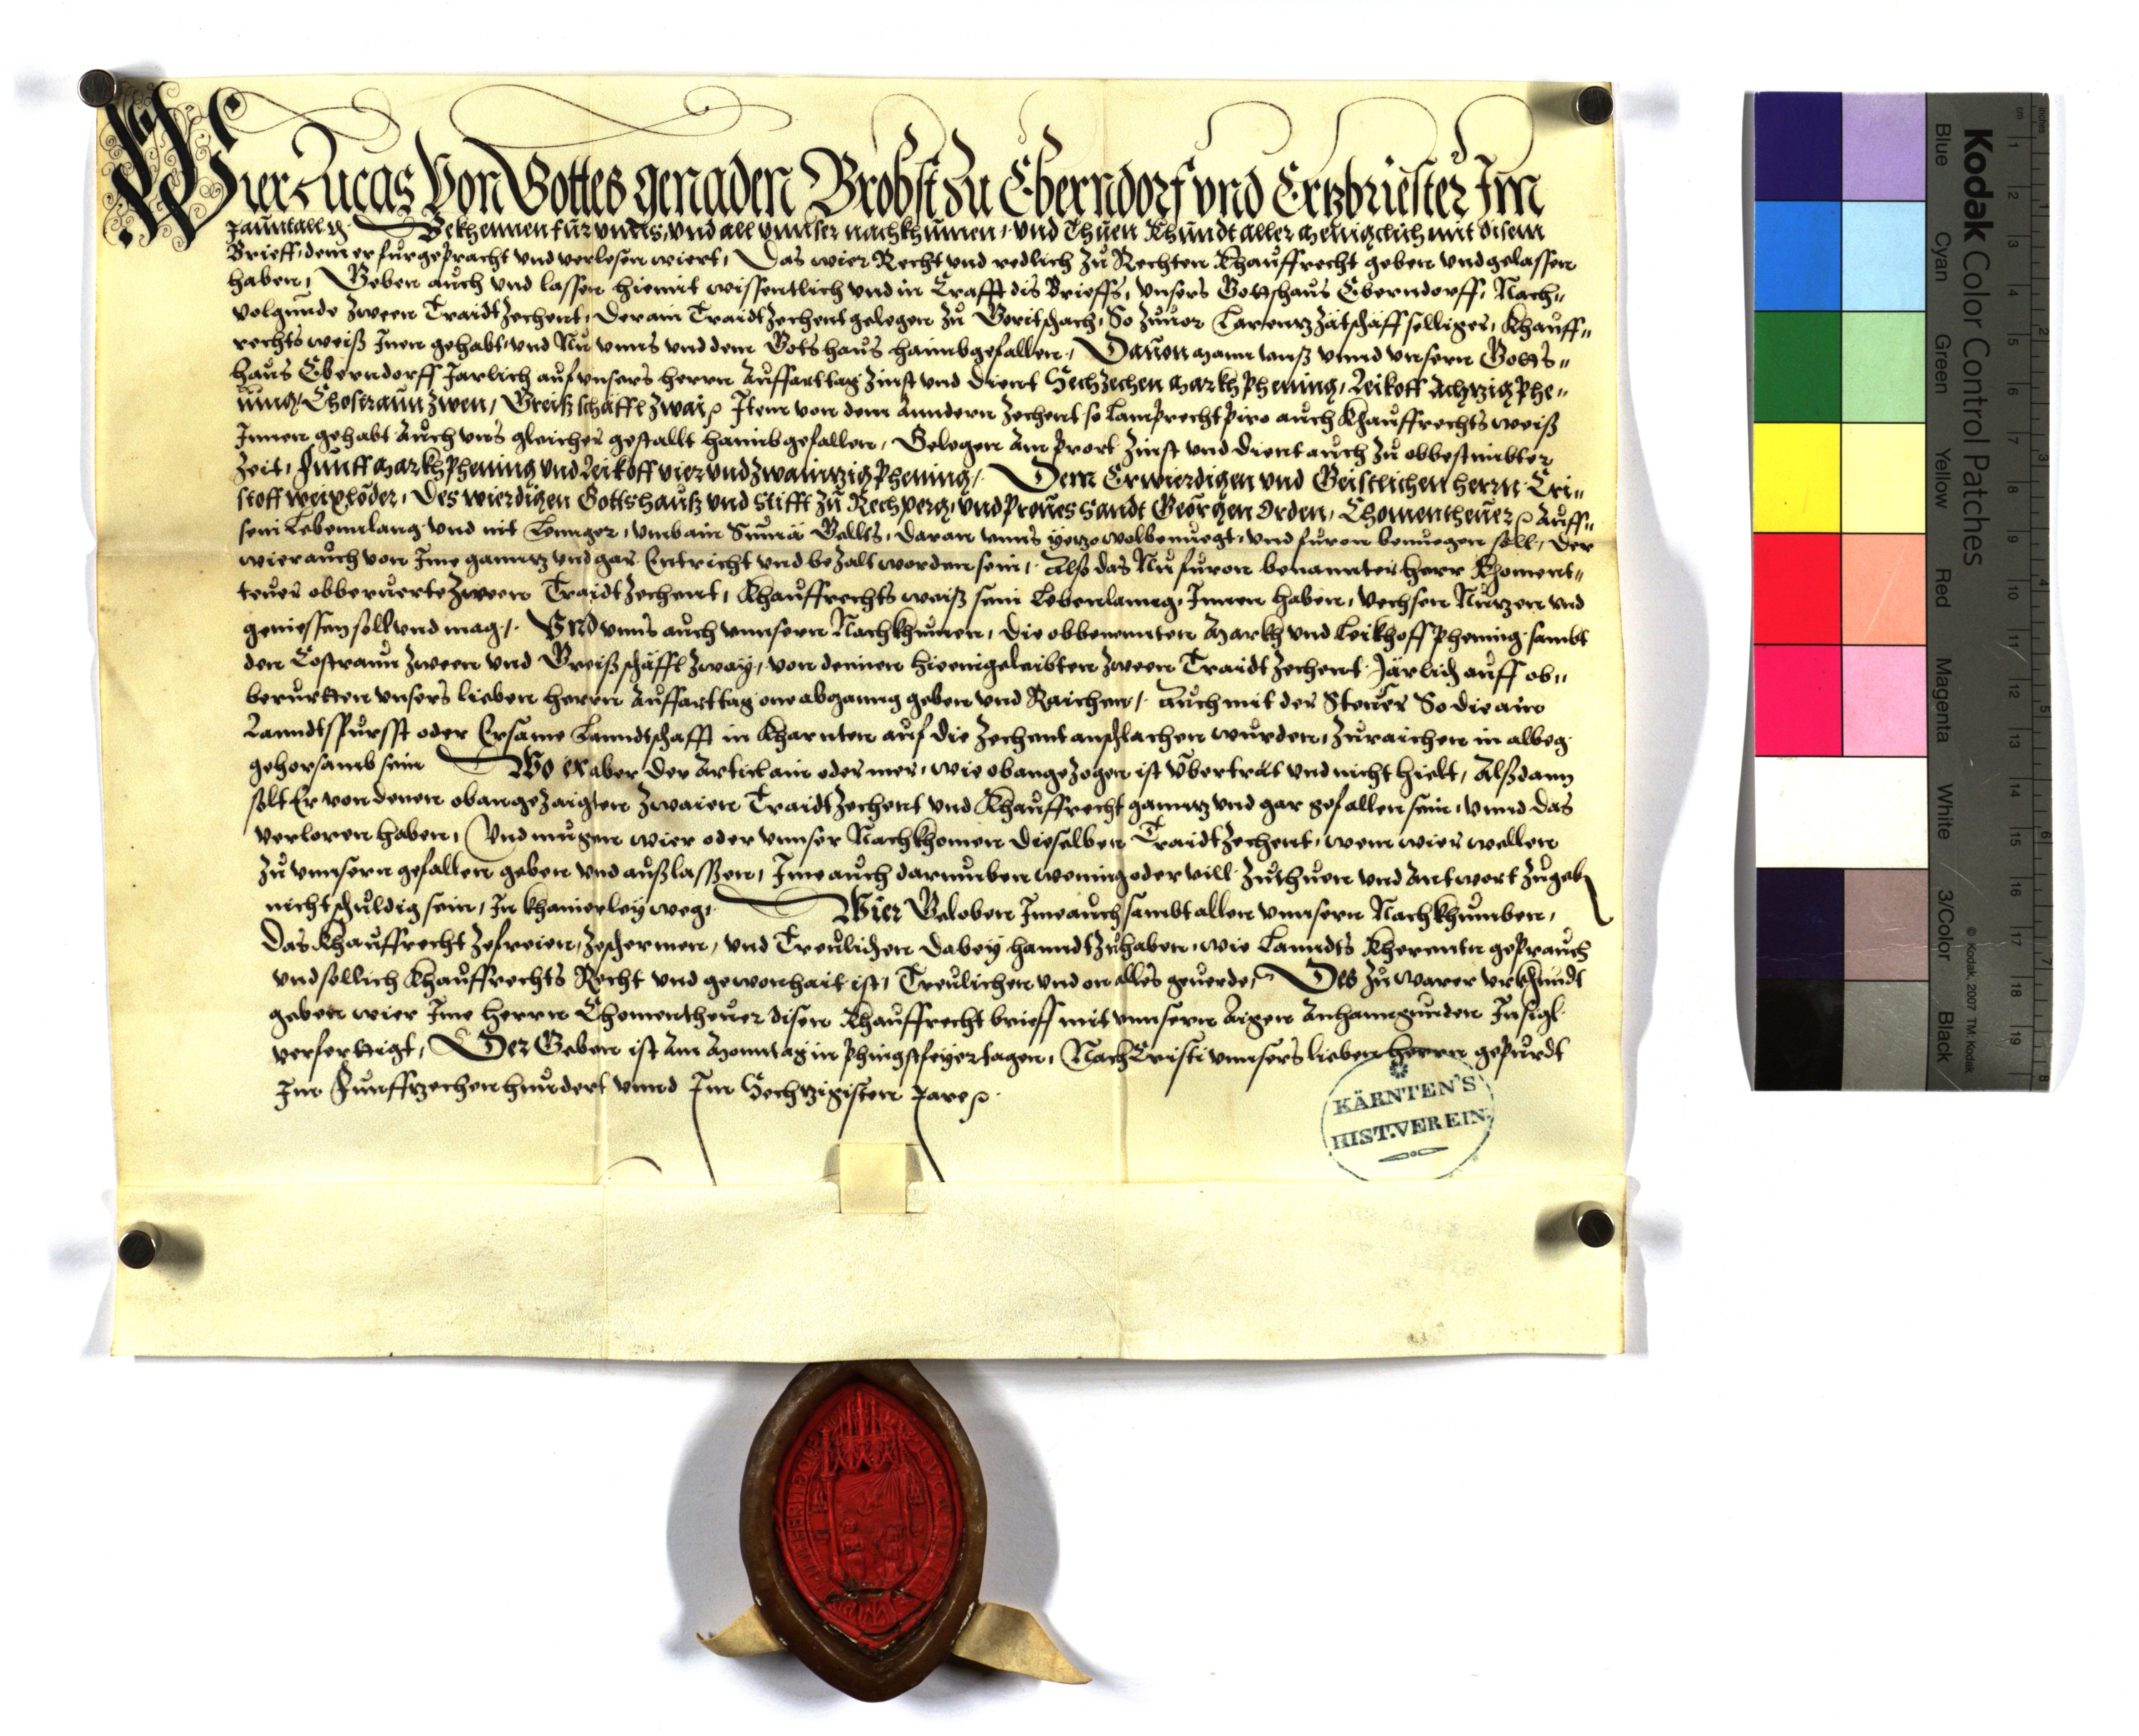 Wier Lucas Von Gottes genaden Brobst zu Eberndorf vnd Ertzbriester Im
Jaunntall Bekhennen für vnns, vnd all vnnser nachkhumen, vnd Thuen khundt aller menigclich mit disem
Brieff, dem er fürgepracht vnd verlesen wiert, Das wier Recht vnd redlich zu Rechten Khauffrecht geben vnd gelassen
haben, Geben auch vnd lassen hiemit wissentlich vnd in Crafft dis Brieffs, vnsers Gottshaus Eberndorff, Nach„
volgunde zween Traidt zechent, Der ain Traidt zechent gelegen zu Goritschach, So zuuor Larentz selliger, Khauff„
rechts weiß Innen gehabt, vnd Nu vnns vnd dem Gotshaus haimbgefallen, Dauon mann vnnß vnnd vnsern Gotts„
haus Eberndorff Jarlich auf vnsers herrn Auffarttag Zinst vnd Dient Sechzechen markh phening, Leikoff Achtzig phe„
ning, Chostraun zwen, Greiß schäffl zwai, Item von dem Anndern Zechent so Lamprecht auch Khauffrechts weiß
Innen gehabt Auch vns gleicher gestallt haimbgefallen, Gelegen Am Zinst vnd Dient auch zu obbestimbter
Zeit, Funff markh phening vnd Leikoff vier vnd zwaintzig phening, Dem Erwierdigen vnd Geistlichen herrn Cri„
stoff Des wierdigen Gottshauß vnd Stifft zu Rechperg, vnd Sandt Georgen Orden, Chomentheuer, Auff„
sein Lebennlang vnd nit Lennger, vmb ain Suma Gellts, daran vnns yetzo wolbenuegt, vnd furon benuegen soll, Der
wier auch von Ime ganntz vnd gar Entricht vnd bezalt worden sein, Also das Nu furon benannter herr Choment„
teuer obberuerte zween Traidt zechent, Khauffrechts weiß sein Lebenlanng, Innen haben, Nutzen vnd
geniessen soll vnd mag, Vnd vnns auch vnnsern Nachkhumen, die obbenennten Markh vnd Leikhoff phening, sambt
den Costraun zween vnd Greiß schäffl zway, von denen zween Traidt zechent Järlich auff ob„
berurtten vnsers lieben herrn Auffarttag one abganng geben vnd Raichen, Auch mit der Steuer So die ain
Lanndtsfürsst oder Ersame Lanndtschafft in Kharnten auf die Zechent anschlachen wurden, zuraichen in albeg
gehorsamb sein Wo er aber der Articl ain oder mer, wie obangezogen ist vbertrat vnd nicht hielt, Alßdann
solt Er von denen obangezaigten zwaien Traidt zechent vnd Khauffrecht ganntz vnd gar gefallen sein, vnnd das
verloren haben, Vnd mugen wier oder vnnser Nachkhomen Dieselben Traidt zechent, wem wier wellen
zu vnnsern gefallen geben vnd außlassen, Ime auch darumben wening oder vill zuthuen vnd Antwort zugeben
nicht schuldig sein, In khainerley weg, Wier Geloben Ime auch sambt allen vnnsern Nachkhumben,
Das Khauffrecht zefreien, zeschermen, vnd Treulichen dabey hanndtzuhaben, wie Lanndts Khernntn geprauch
vnd sollich Khauffrechts Recht vnd gewonhait ist, Treulichen vnd on alles geuerde, Des zu warer vrkhundt
geben wier Ime herrn Chomentheuer disen Khauffrecht brieff mit vnnsern Aigen Anhanngunden Insigl
verferttigt, Der Geben ist Am Monntag in phingstfeyertagen, Nach Cristi vnnsers lieben herrn gepurdt
Im Funffzechenhundert vnnd Im Sechtzigisten Jare
KÄRNTEN'S
HIST. VEREIN
Kodak Color Control Patches
Blue Cyan Green Yellow Red Magenta White 3/Color Black
© Kodak, 2007 TM: Kodak
cm 1 2 3 4 5 6 7 8 9 10 11 12 13 14 15 16 17 18 19
inches 1 2 3 4 5 6 7 8